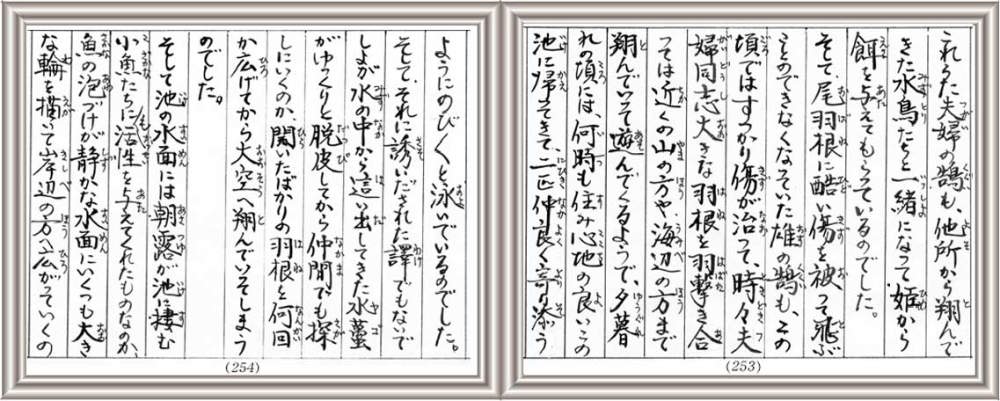 夫婦の鵠も、他所から翔んで
きた水鳥たちと一緒になって、姫から
餌を与えてもらっているのでした。
そして、尾羽根に酷い傷を被って飛ぶ
ことのできなくなっていた雄の鵠も、この
頃ではすっかり傷が治って、時々夫
婦同志大きな羽根を羽撃き合
っては近くの山の方や、海辺の方まで
翔んでいって遊んでくるようで、夕暮
れの頃には、何時も住み心地の良いこの
池に帰ってきて、二匹仲良く寄り添う
(253)
ようにのびのびと泳いでいるのでした。
そして、それに誘いだされた譯でもないで
しょが水の中から這い出してきた水蠆
がゆっくりと脱皮してから仲間でも探
しにいくのか、開いたばかりの羽根を何回
か広げてから大空へ翔んでいってしまう
のでした。
そして池の水面には朝露が池に棲む
小魚たちに活生を与えてくれたものなのか、
魚の泡づけが静かな水面にいくつも大き
な輪を描いて岸辺の方へ広がっていくの
(254)